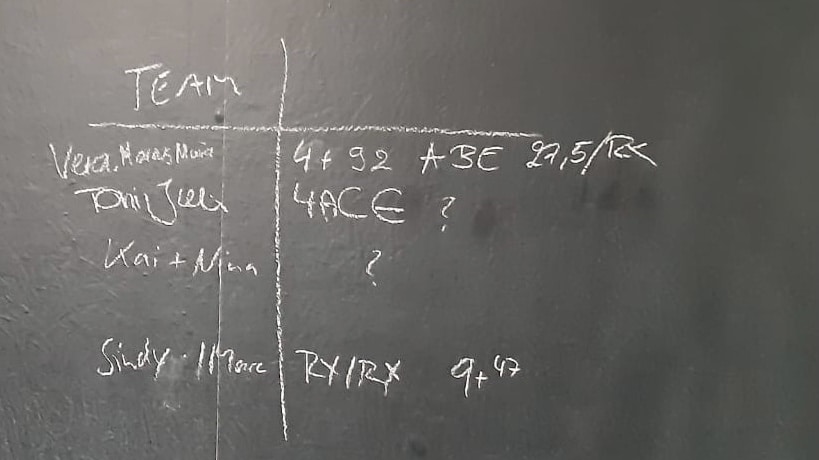 TEAM
Vera, Maria 4 + 92 ABE 27,5/RX
Toni, 4ACE ?
Kai + Nina ?
Sindy / Marc RX/RX 9+47